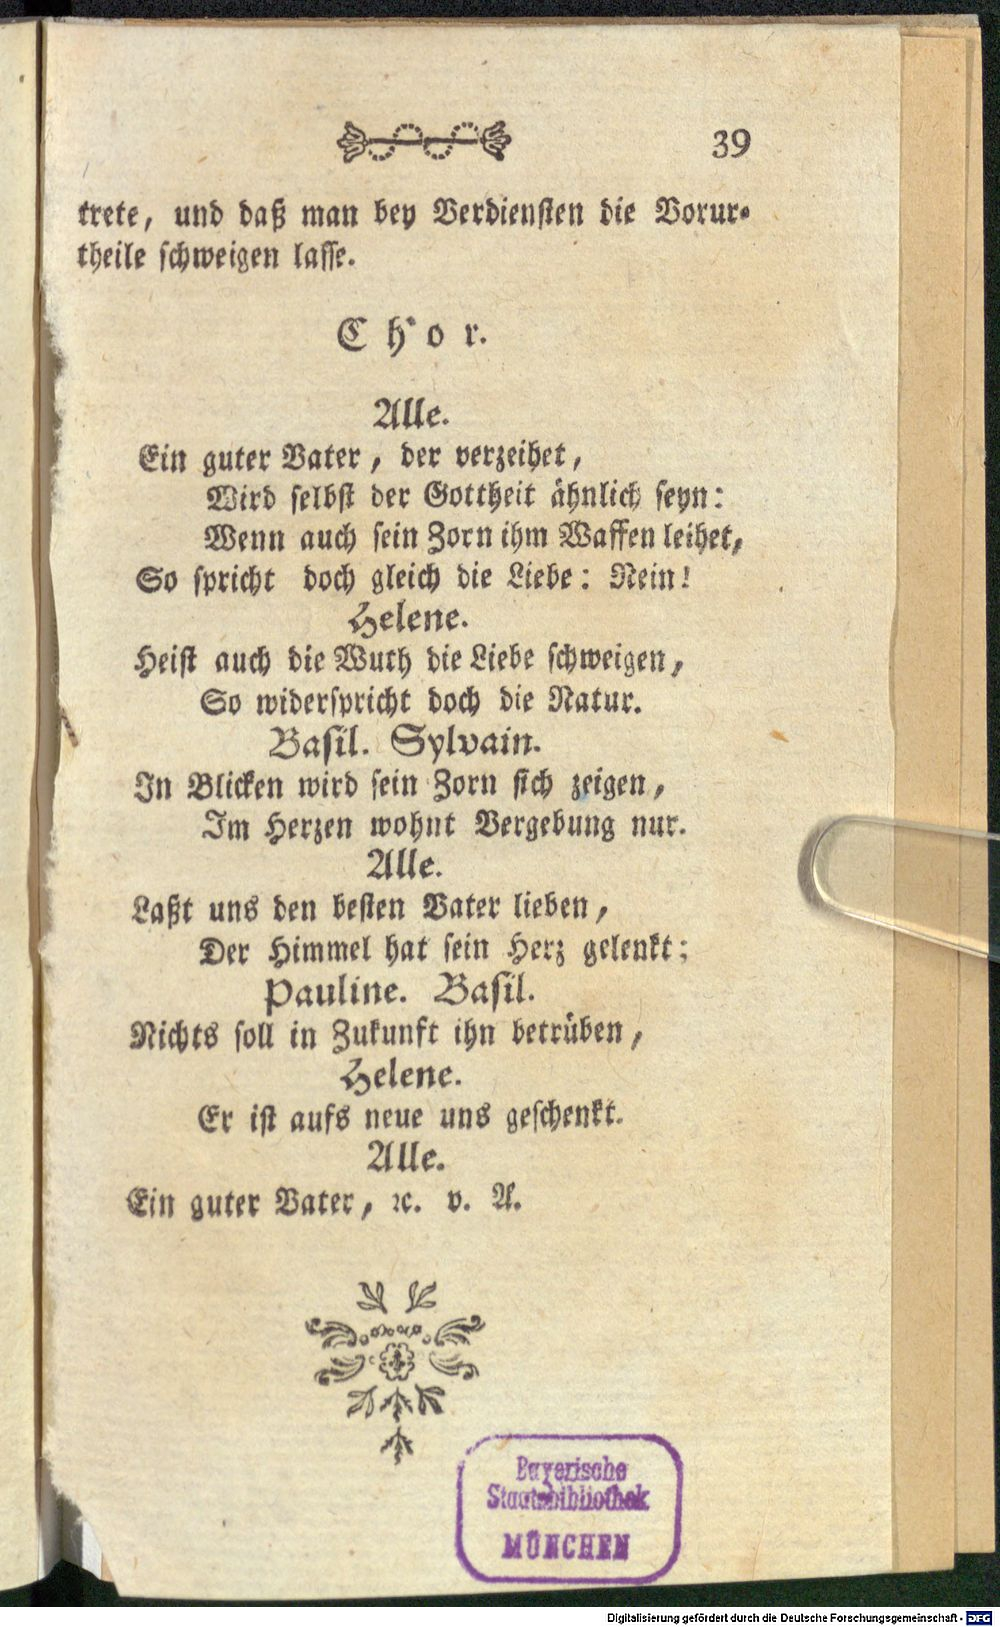 39
trete, und daß man bey Verdiensten die Vorur-
theile schweigen lasse.
Chor.
Alle.
Ein guter Vater, der verzeihet,
Wird selbst der Gottheit ähnlich seyn:
Wenn auch sein Zorn ihm Waffen leihet,
So spricht doch gleich die Liebe: Nein!
Helene.
Heist auch die Wuth die Liebe schweigen,
So widerspricht doch die Natur.
Basil. Sylvain.
In Blicken wird sein Zorn sich zeigen,
Im Herzen wohnt Vergebung nur.
Alle.
Laßt uns den besten Vater lieben,
Der Himmel hat sein Herz gelenkt;
Pauline. Basil.
Nichts soll in Zukunft ihn betrüben,
Helene.
Er ist aufs neue uns geschenkt.
Alle.
Ein guter Vater, ꝛc. v. A.
Bayerische
Staatsbibliothek
MÜNCHEN
Digitalisierung gefördert durch die Deutsche Forschungsgemeinschaft - DFG